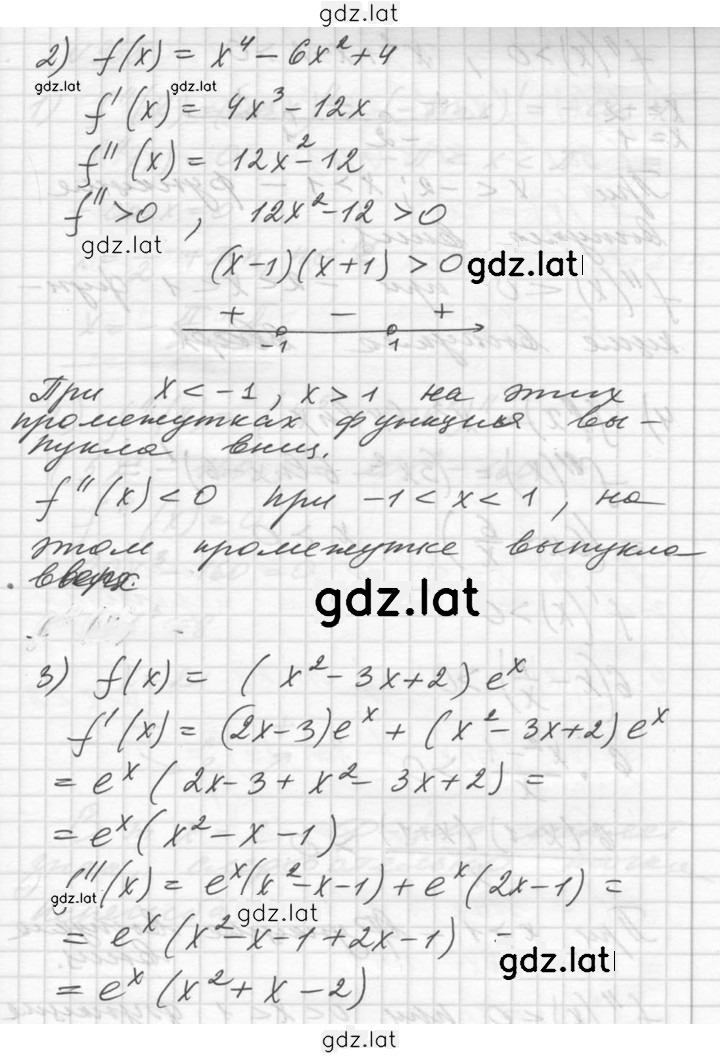 gdz.lat
2) f(x) = x⁴ - 6x² + 4
gdz.lat gdz.lat
f'(x) = 4x³ - 12x
f''(x) = 12x² - 12
f'' > 0 , 12x² - 12 > 0
gdz.lat
(x-1)(x+1) > 0 gdz.lat
+ - +
-1 1
При x < -1, x > 1 на этих
промежутках функция вы-
пукла вниз.
f''(x) < 0 при -1 < x < 1, на
этом промежутке выпукла
вверх.
gdz.lat
3) f(x) = (x² - 3x + 2) eˣ
f'(x) = (2x-3)eˣ + (x² - 3x + 2) eˣ
= eˣ (2x - 3 + x² - 3x + 2) =
= eˣ (x² - x - 1)
f''(x) = eˣ(x² - x - 1) + eˣ(2x - 1) =
gdz.lat gdz.lat
= eˣ (x² - x - 1 + 2x - 1) =
gdz.lat
= eˣ (x² + x - 2)
gdz.lat